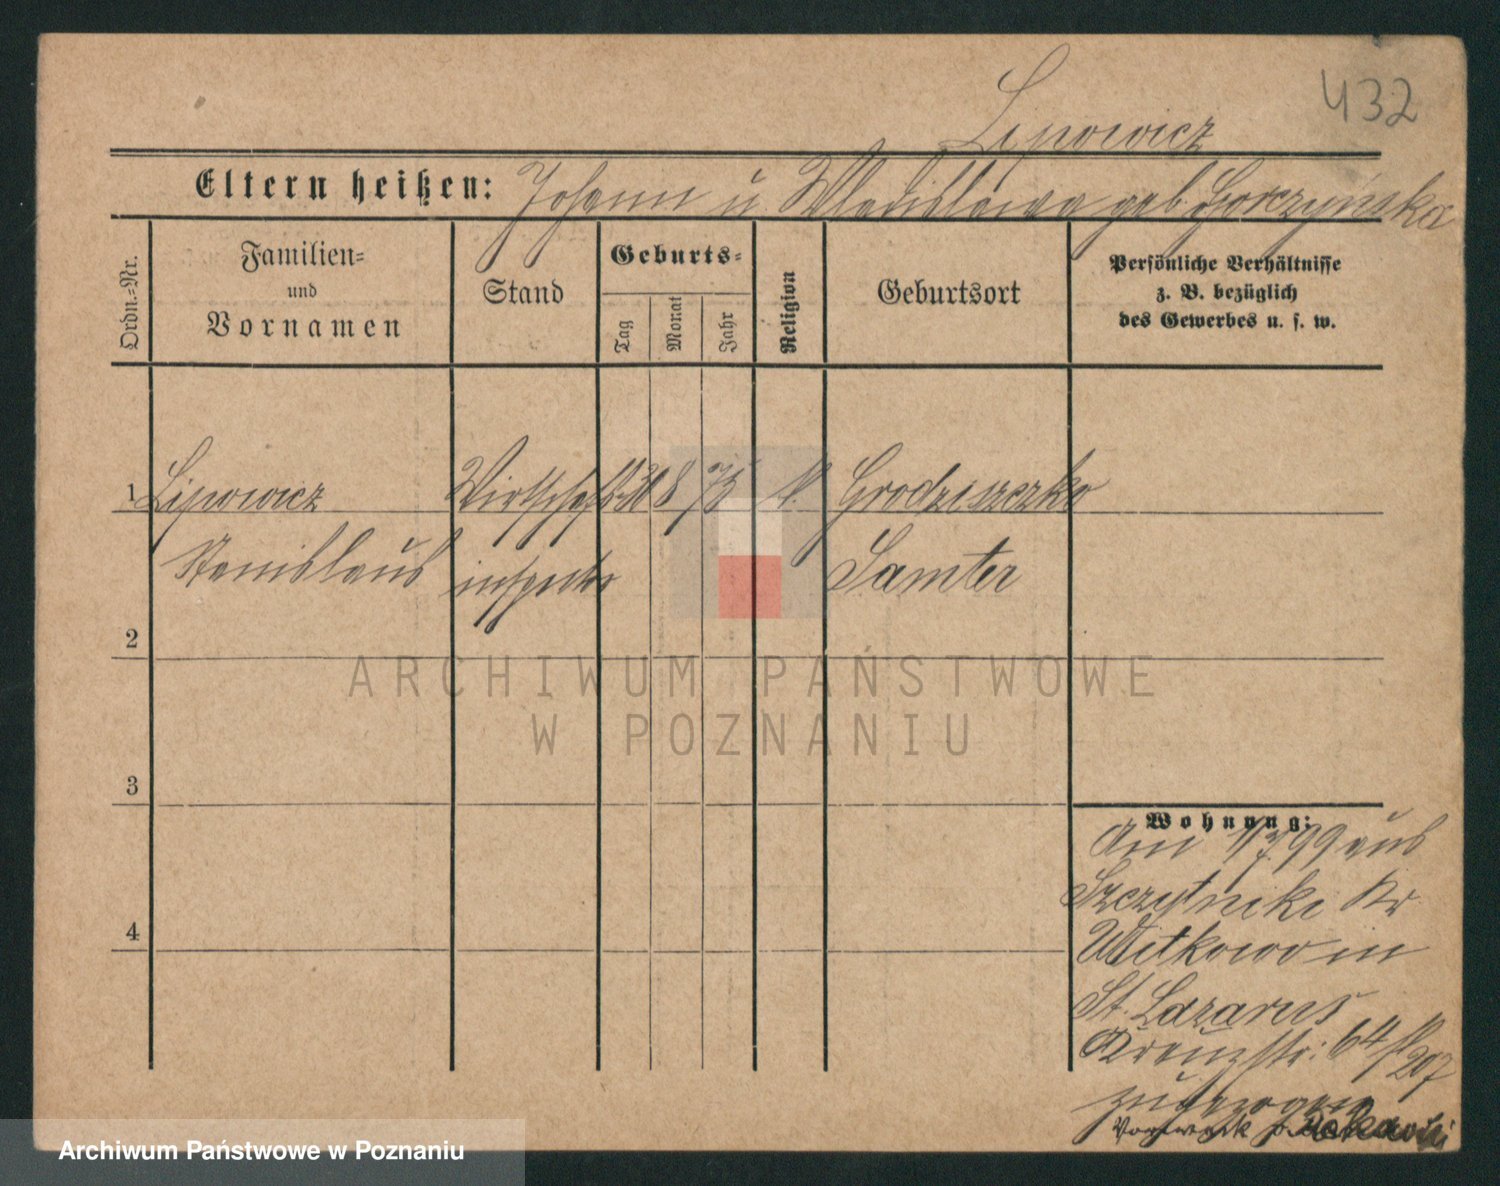 432
Lipowicz
Eltern heißen: Johann u. Wladislawa geb. Gorczyńska
Ordn.-Nr.
Familien-
und
Vornamen
Stand
Geburts-
Tag
Monat
Jahr
Religion
Geburtsort
Persönliche Verhältnisse
z. B. bezüglich
des Gewerbes u. s. w.
1 Lipowicz Wirtschafts- 30 8 75 k. Grodziszczko
Stanislaus inspector Samter
2
3
4
ARCHIWUM PAŃSTWOWE
W POZNANIU
Wohnung:
Am 1/7 99 aus
Szczytniki Kr
Witkowo in
St. Lazarus
Kreuzstr: 64
zugezogen
Archiwum Państwowe w Poznaniu